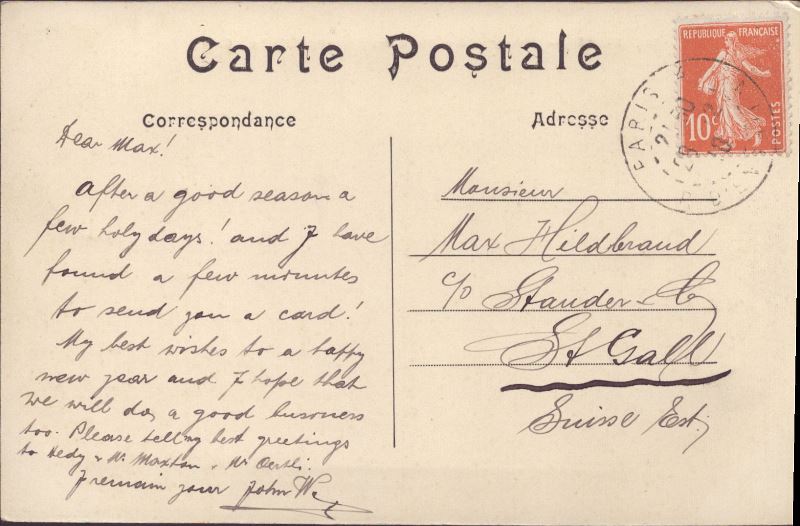 Carte Postale
Correspondance
Adresse
REPUBLIQUE FRANÇAISE
10c
POSTES
PARIS
Dear Max!
After a good season a
few holydays! and I have
found a few minutes
to send you a card!
My best wishes to a happy
new year and I hope that
we will do a good business
too. Please tell my best greetings
to Hedy & Mr. Maxton & Mr Oertli.
I remain your John W.
Monsieur
Max Hildbrand
c/o Stauder & Co
St Gall
Suisse Est.